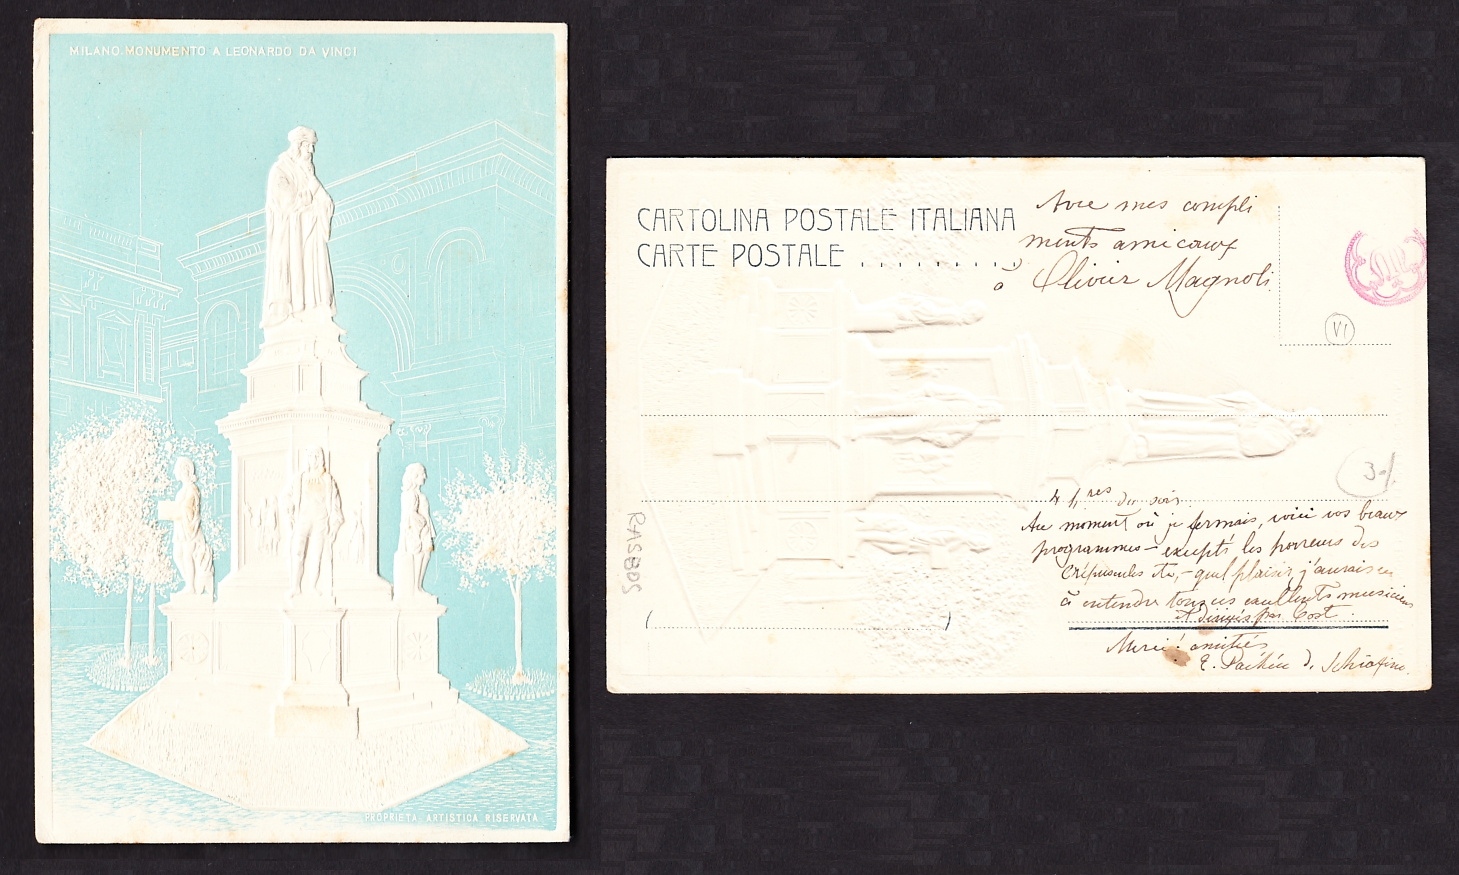 MILANO. MONUMENTO A LEONARDO DA VINCI
PROPRIETÀ ARTISTICA RISERVATA
CARTOLINA POSTALE ITALIANA
CARTE POSTALE
Avec mes compli
ments amicaux
à Olivier Magnoli
VI
3-
RASBOS
4 hres du soir
Au moment où je fermais, voici vos beaux
programmes - excepté les horreurs des
Crépuscules etc, - quel plaisir j'aurais eu
à entendre tous ces excellents musiciens
et dirigés par Cost
Merci! amitiés